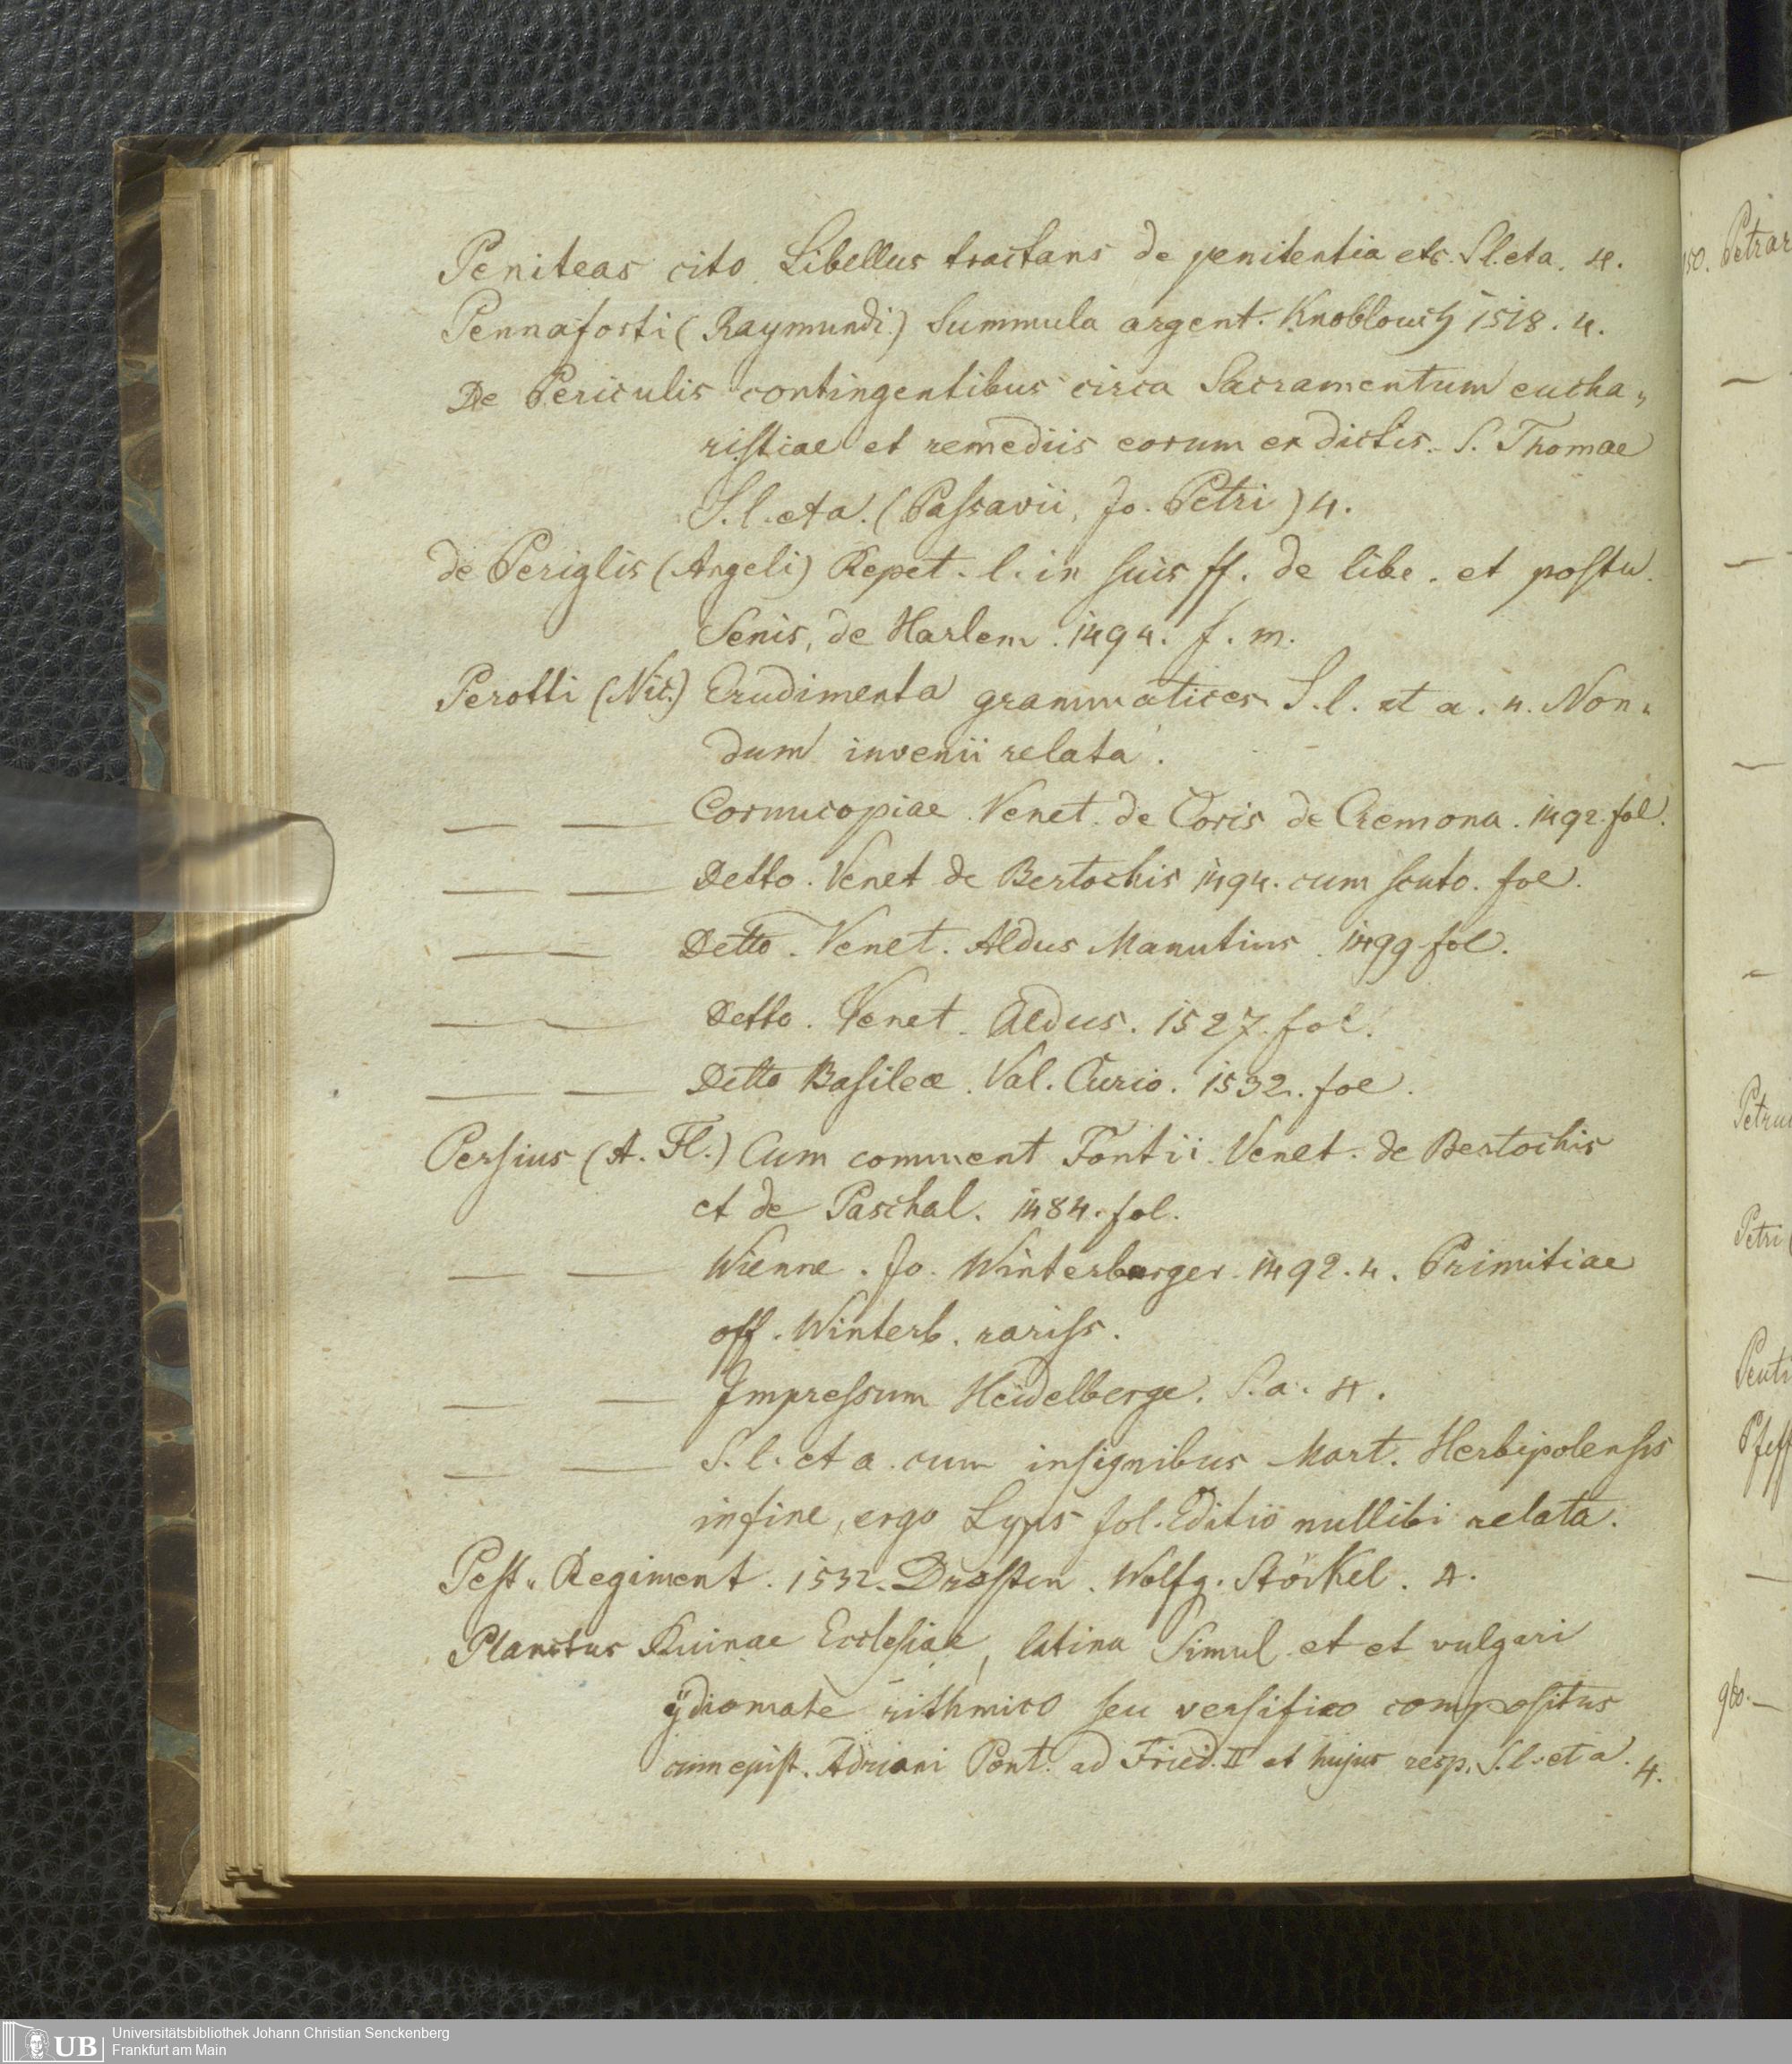 Peniteas cito Libellus tractans de penitentia etc. S.l.eta. 4.
Pennaforti (Raymundi) Summula argent. Knoblouch 1518. 4.
De Periculis contingentibus circa Sacramentum eucha„
ristiae et remediis eorum ex dictis. S. Thomae
S.l. et a. (Passavii, Jo. Petri) 4.
de Periglis (Angeli) Repet. l. in suis ff. de libe. et postu.
Senis, de Harlem. 1494. f. m.
Perotti (Nic.) Erudimenta grammatices. S. l. et a. 4. Non„
dum invenii relata.
— — Cornucopiae. Venet. de Coris de Cremona. 1492. fol.
— — Detto. Venet de Bertochis 1494. cum scuto. fol.
— — Detto. Venet. Aldus Manutius. 1499 fol.
— — Detto. Venet. Aldus. 1527. fol.
— — Detto Basileæ. Val. Curio. 1532. fol.
Persius (A. Fl.) Cum comment Fontii. Venet. de Bertochis
et de Paschal. 1484. fol.
— — Wienne. Jo. Winterburger. 1492. 4. Primitiae
off. Winterb. rariss.
— — Impressum Heidelberge. S. a. 4.
— — S. l. et a. cum insignibus Mart. Herbipolensis
infine, ergo Lyps fol. Editio nullibi relata.
Pest„ Regiment. 1532. Dresten. Wolfg. Stöckel. 4.
Planctus Ruinae Ecclesiae, latina Simul et et vulgari
ÿdiomate rithmico seu versifico compositus
cum epist. Adriani Pont. ad Fried. II et hujus resp. S. l. et a. 4.
Petrar
Petri
Pfeff
UB Universitätsbibliothek Johann Christian Senckenberg
Frankfurt am Main